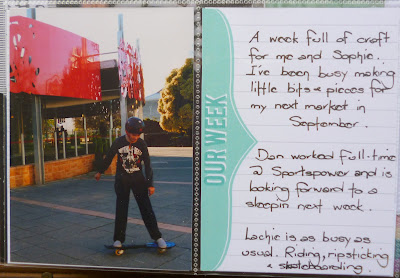 OUR WEEK
A week full of craft
for me and Sophie..
I've been busy making
little bits & pieces for
my next market in
September.
Dan worked full-time
@ Sportspower and is
looking forward to a
sleepin next week.
Lachie is as busy as
usual. Riding, ripsticking
& skateboarding